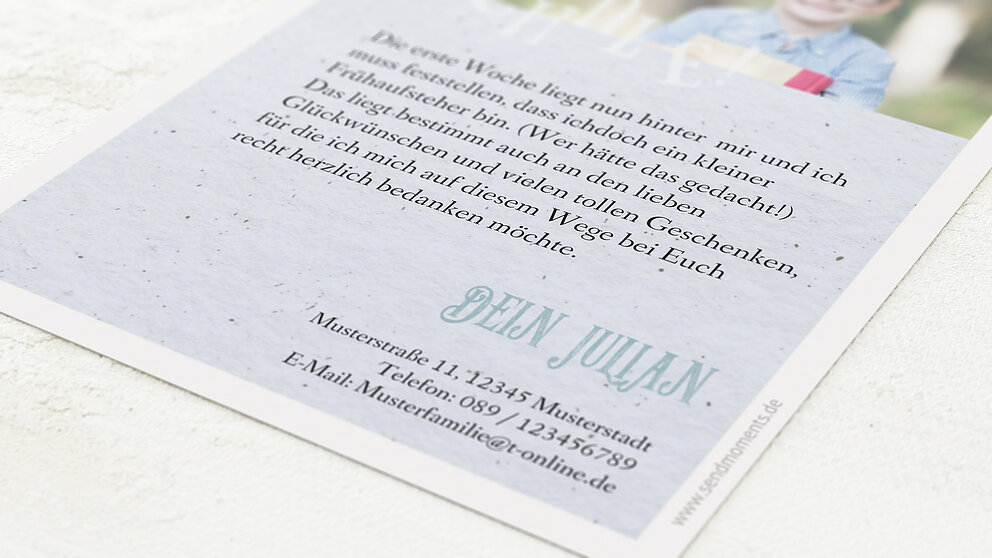 Die erste Woche liegt nun hinter mir und ich
muss feststellen, dass ichdoch ein kleiner
Frühaufsteher bin. (Wer hätte das gedacht!)
Das liegt bestimmt auch an den lieben
Glückwünschen und vielen tollen Geschenken,
für die ich mich auf diesem Wege bei Euch
recht herzlich bedanken möchte.
DEIN JULIAN
Musterstraße 11, 12345 Musterstadt
Telefon: 089 / 123456789
E-Mail: Musterfamilie@t-online.de
www.sendmoments.de